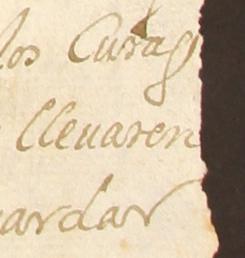 los Curag
llevaren
ardar